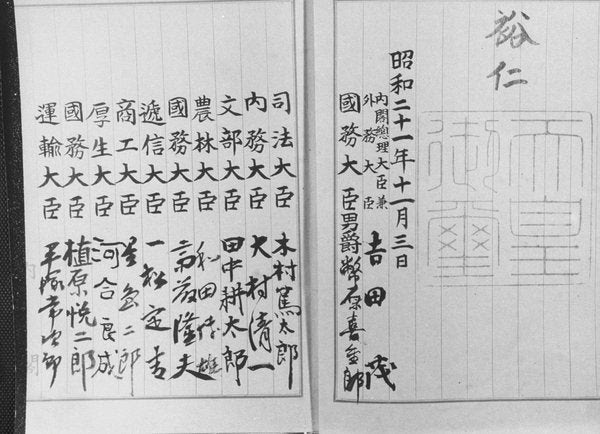 裕仁
天皇
御璽
昭和二十一年十一月三日
内閣總理大臣兼
外務大臣 吉田茂
國務大臣男爵幣原喜重郎
司法大臣 木村篤太郎
内務大臣 大村清一
文部大臣 田中耕太郎
農林大臣 和田博雄
國務大臣 斎藤隆夫
遞信大臣 一松定吉
商工大臣 星島二郎
厚生大臣 河合良成
國務大臣 植原悦二郎
運輸大臣 平塚常次郎
内閣